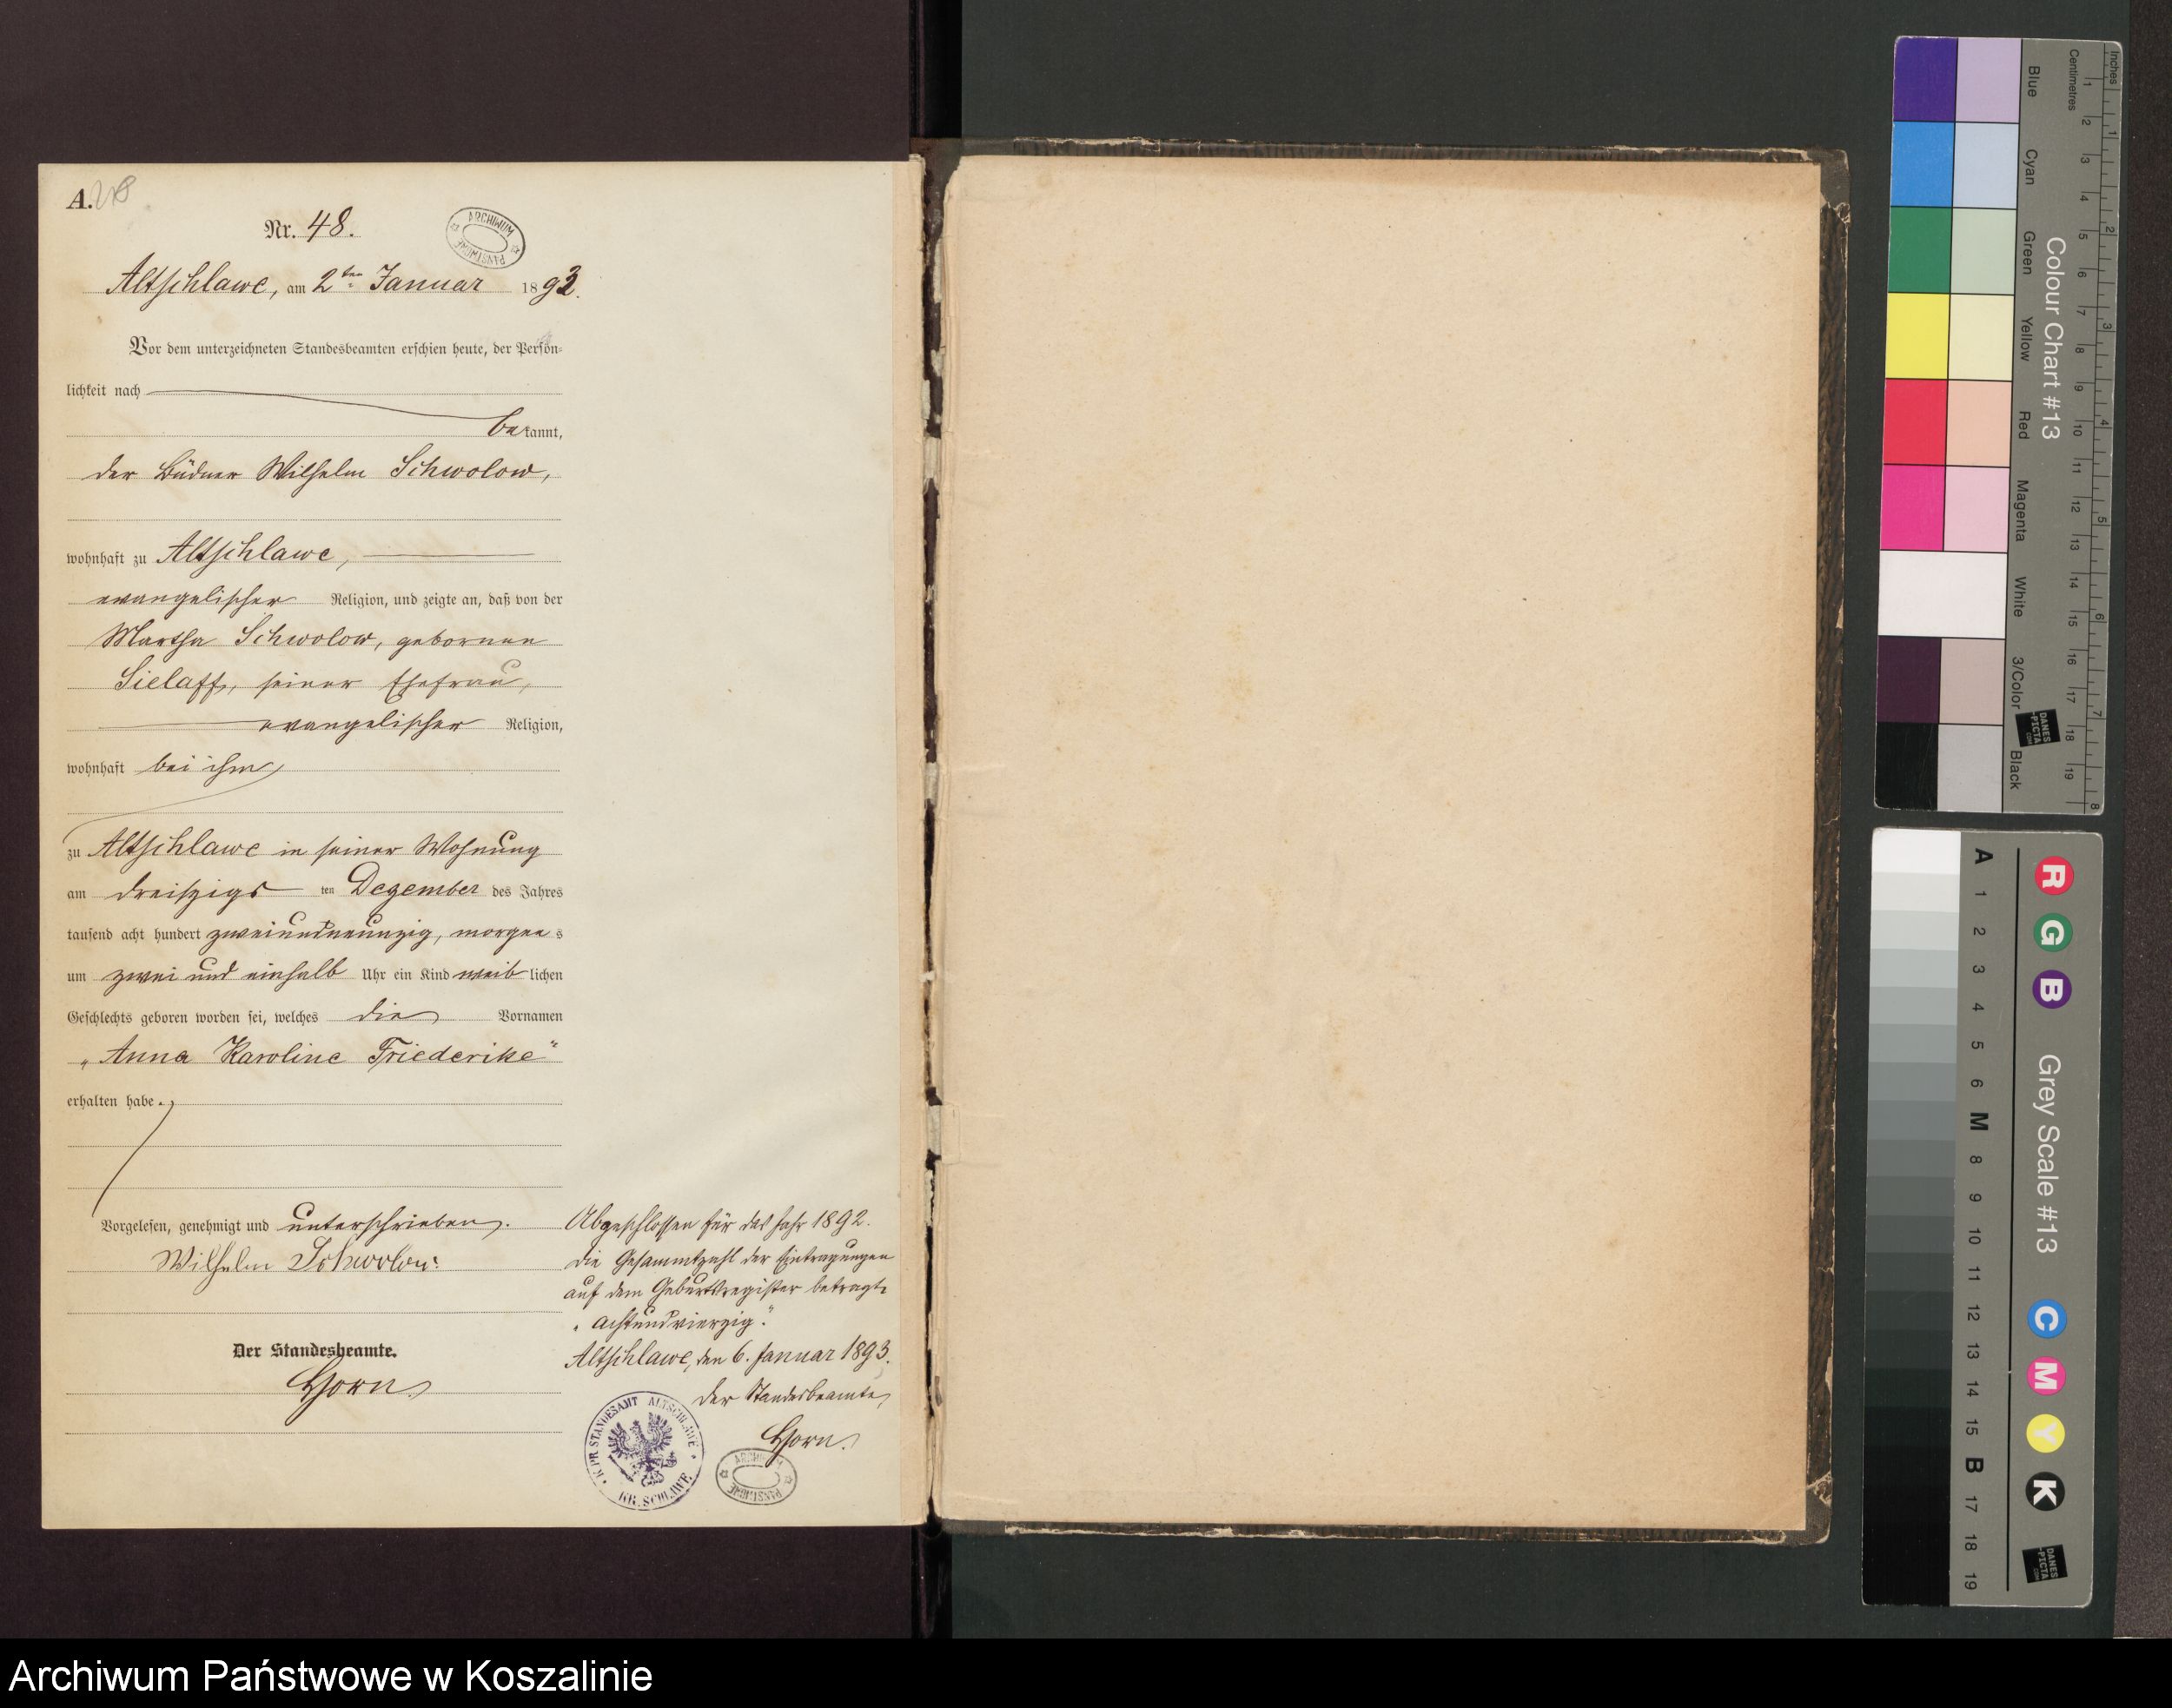 A. 48
Nr. 48.
ARCHIWUM PAŃSTWOWE
Altschlawe, am 2ten Januar 1893.
Vor dem unterzeichneten Standesbeamten erschien heute, der Persön-
lichkeit nach
bekannt,
der Büdner Wilhelm Schwolow,
wohnhaft zu Altschlawe,
evangelischer Religion, und zeigte an, daß von der
Martha Schwolow, geborenen
Sielaff, seiner Ehefrau,
evangelischer Religion,
wohnhaft bei ihm
zu Altschlawe in seiner Wohnung
am dreißigs ten Dezember des Jahres
tausend acht hundert zweiundneunzig, morgens
um zwei und einhalb Uhr ein Kind weiblichen
Geschlechts geboren worden sei, welches die Vornamen
„Anna Karoline Friederike“
erhalten habe.
Vorgelesen, genehmigt und unterschrieben.
Wilhelm Schwolow
Der Standesbeamte.
Horn.
Abgeschlossen für das Jahr 1892.
Die Gesammtzahl der Eintragungen
auf dem Geburtsregister beträgt:
„achtundvierzig“.
Altschlawe, den 6. Januar 1893.
Der Standesbeamte
Horn.
K. PR. STANDESAMT ALTSCHLAWE
KR. SCHLAWE
ARCHIWUM PAŃSTWOWE
Colour Chart #13
Inches 1 2 3 4 5 6 7 8
Centimetres 1 2 3 4 5 6 7 8 9 10 11 12 13 14 15 16 17 18 19
Blue Cyan Green Yellow Red Magenta White 3/Color Black
DANES-PICTA.COM
Grey Scale #13
A 1 2 3 4 5 6 M 8 9 10 11 12 13 14 15 B 17 18 19
R G B C M Y K
DANES-PICTA.COM
Archiwum Państwowe w Koszalinie